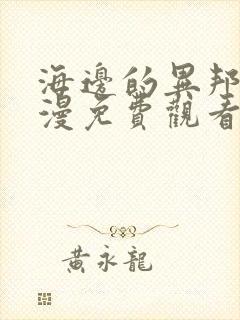 海邊的異邦
漫免費觀看
黃永龍